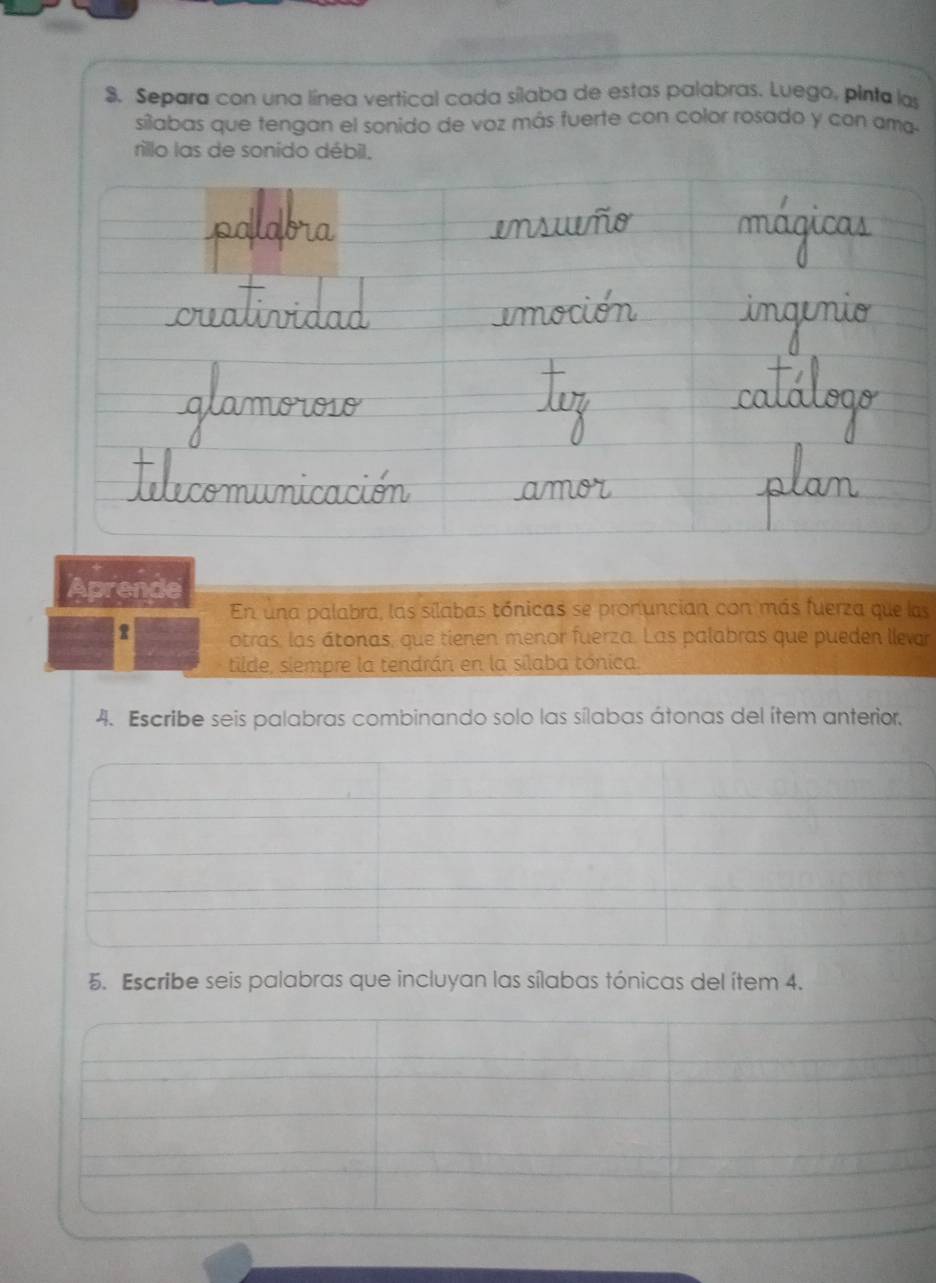 3. Separa con una línea vertical cada sílaba de estas palabras. Luego, pinta las
sílabas que tengan el sonido de voz más fuerte con color rosado y con ama-
rillo las de sonido débil.
palabra ensueño mágicas
creatividad emoción ingenio
glamoroso tez catálogo
telecomunicación amor plan
Aprende
En una palabra, las sílabas tónicas se pronuncian con más fuerza que las
otras, las átonas, que tienen menor fuerza. Las palabras que pueden llevar
tilde, siempre la tendrán en la sílaba tónica.
4. Escribe seis palabras combinando solo las sílabas átonas del ítem anterior.
5. Escribe seis palabras que incluyan las sílabas tónicas del ítem 4.